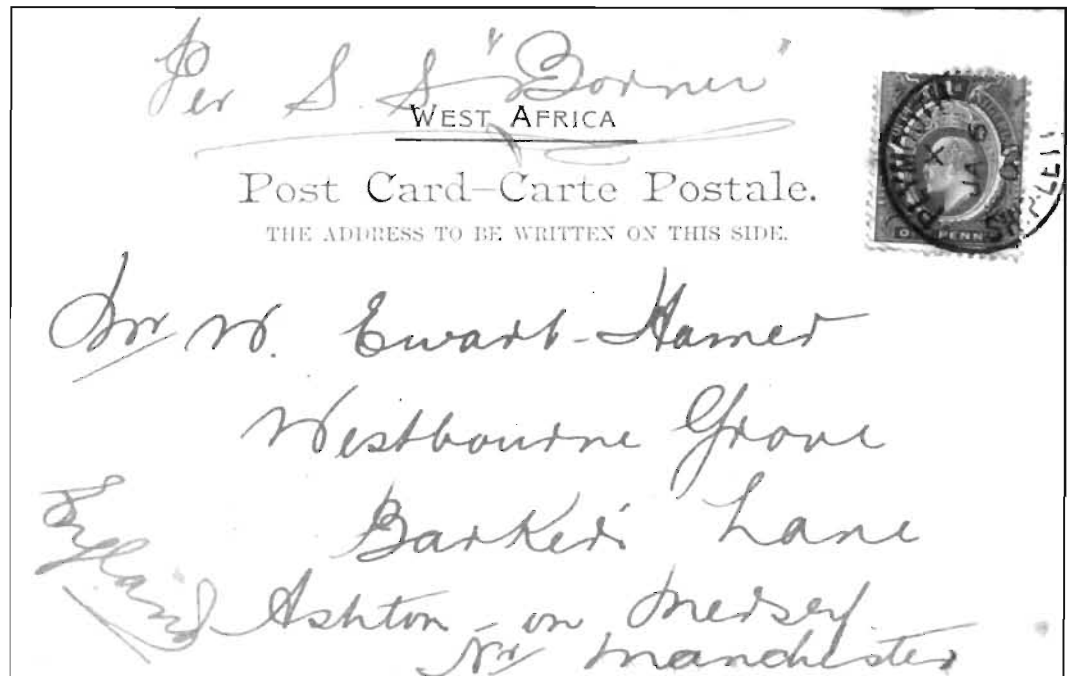 Per S. S "Bornu"
WEST AFRICA
Post Card–Carte Postale.
THE ADDRESS TO BE WRITTEN ON THIS SIDE.
PLYMOUTH
JA 5
10
SHIP LETT
ONE PENNY
Mr W. Ewart-Hamer
Westbourne Grove
Barker's Lane
Ashton-on Mersey.
Nr Manchester
England